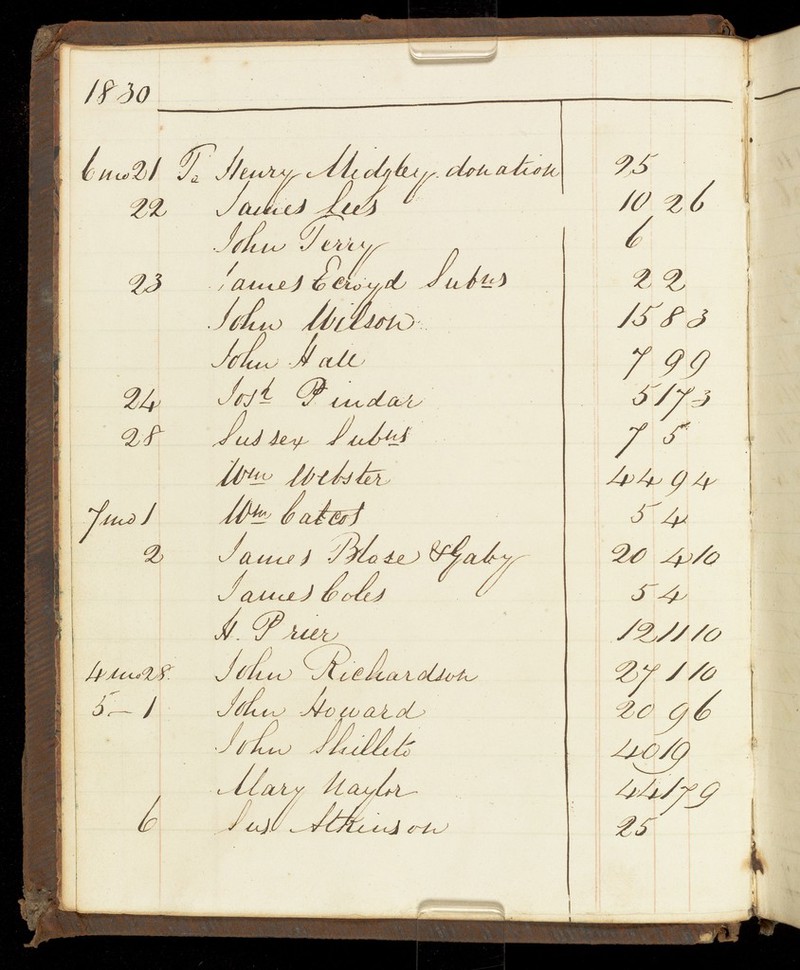 1830
6mo21 To Henry Midgley donation 25
22 James Lees 10 2 6
John Terry 6
23 James Ecroyd Subns 2 2
John Wilson 15 8 3
John Hall 7 9 9
24 Josh Pindar 5 17 3
28 Sussex Subns 7 5
Wm Webster 44 9 4
7mo1 Wm Catcot 5 4
2 James Blaze & Gaby 20 4 10
James Coles 5 4
H. Prier 12 11 10
4mo28 John Richardson 27 1 10
5-1 John Howard 20 9 6
John Shilleto 40 19
Mary Naylor 44 17 9
6 Atkinson 25